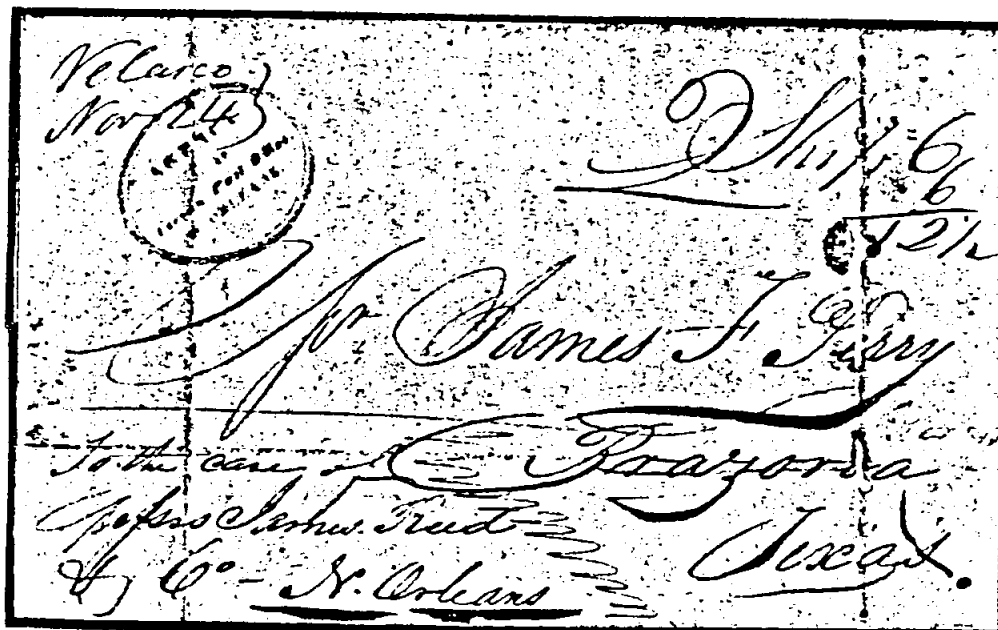 Velasco
Nov 24
Ship 6
6
12½
James F. Perry
Brazoria
Texas.
To the care of
Messrs James Reed
& Co - N. Orleans